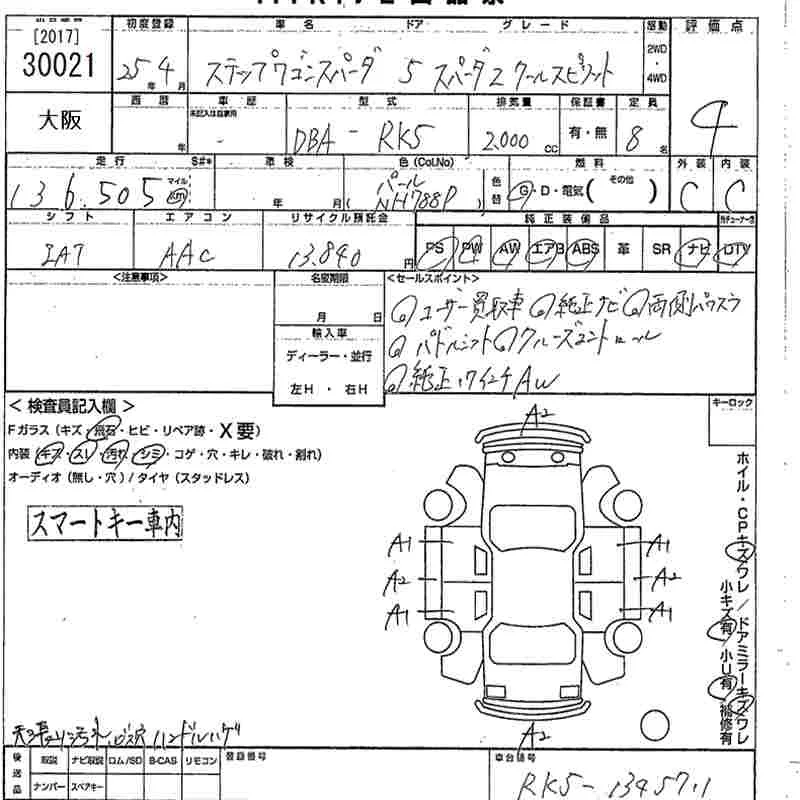 [2017] 初度登録 車名 ドア グレード 駆動 評価点
30021 25年4月 ステップワゴンスパーダ 5 スパーダZクールスピリット 2WD・4WD 4
大阪 西暦 車歴 型式 排気量 保証書 定員
未記入は自家用
年 - DBA - RK5 2,000cc 有・無 8名
走行 S#* 車検 色(Col.No) 色替 燃料 外装 内装
136,505 マイル km 年 月 パール NH788P G・D・電気( その他 ) C C
シフト エアコン リサイクル預託金 純正装備品
IAT AAC 13,840円 PS PW AW エアB ABS 革 SR ナビ DTV
<注意事項> 名変期限 <セールスポイント>
月 日 ユーザー買取車 純正ナビ 両側パワスラ
輸入車 パドルシフト クルーズコントロール
ディーラー・並行
左H・右H 純正17インチAW
<検査員記入欄> キーロック
Fガラス(キズ・飛石・ヒビ・リペア跡・X要)
内装(キズ・スレ・汚れ・シミ・コゲ・穴・キレ・破れ・割れ)
オーディオ(無し・穴)/タイヤ(スタッドレス)
スマートキー車内
A2
A1 A1
A2 A2
A1 A1
A2
ホイル・CPキズワレ/ドアミラーキズワレ
小キズ有/小U有・補修有
天張り汚れ ビス穴 ハンドルハゲ
後送品 取説 ナビ取説 ロム/SD B-CAS リモコン 登録番号 車台番号
ナンバー スペアキー RK5-1345711